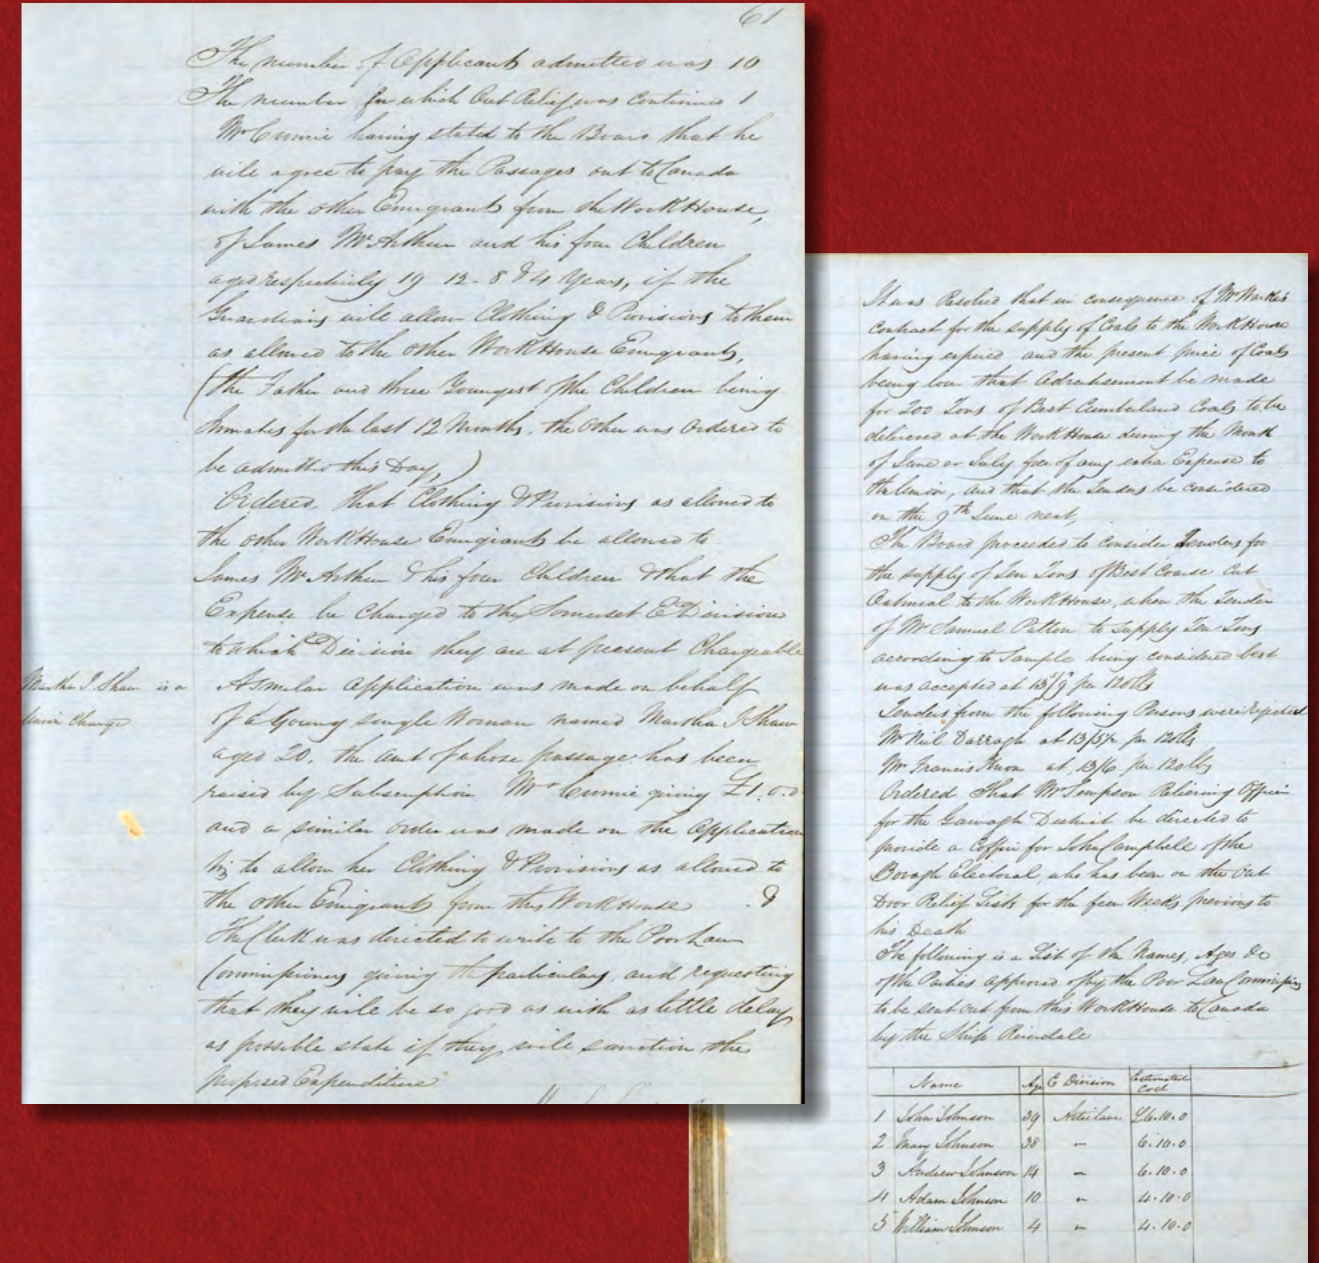 61
The number of Applicants admitted was 10
The number for which Out Relief was Continued 1
Mr Currie having stated to the Board that he
will agree to pay the Passages out to Canada
with the other Emigrants from the WorkHouse,
of James McArthur and his four Children
aged respectively 19 12 - 8 & 4 Years, if the
Guardians will allow Clothing & Provisions to them
as allowed to the other WorkHouse Emigrants,
(the Father and three Youngest of the Children being
Inmates for the last 12 Months, the other was Ordered to
be admitted this Day,)
Ordered, that Clothing & Provisions as allowed to
the other WorkHouse Emigrants be allowed to
James McArthur & his four Children & that the
Expense be Charged to the Somerset E Division
to which Division they are at present Chargeable
Martha J Shaw is a
Union Charge
A similar application was made on behalf
of a Young single Woman named Martha J Shaw
aged 20, the amt of whose passage has been
raised by Subscription Mr Currie giving £1.0.0
and a similar order was made on the Application
viz to allow her Clothing & Provisions as allowed to
the other Emigrants from this WorkHouse &
The Clerk was directed to write to the Poor Law
Commissioners giving the particulars, and requesting
that they will be so good as with as little delay
as possible state if they will sanction the
proposed Expenditure
It was Resolved that in consequence of Mr
contract for the supply of Coals to the WorkHouse
having expired and the present price of Coals
being low that Advertisement be made
for 200 Tons of Best Cumberland Coals to be
delivered at the WorkHouse during the Month
of June or July free of any extra Expense to
the Union, and that the Tenders be considered
on the 9th June next,
The Board proceeded to consider Tenders for
the supply of Ten Tons of Best Coarse Cut
Oatmeal to the WorkHouse, when the Tender
of Mr Samuel Patton to supply Ten Tons
according to Sample being considered best
was accepted at 13/9 per 120 lbs
Tenders from the following Persons were rejected
Mr Neil Darragh at 13/5½ per 120 lbs
Mr Francis at 13/6 per 120 lbs
Ordered That Mr Simpson Relieving Officer
for the Garvagh District be directed to
provide a Coffin for John Campbell of the
Bovagh Electoral, who has been on the Out
Door Relief Lists for the few Weeks previous to
his Death
The following is a List of the Names, Ages &c
of the Parties approved of by the Poor Law Commissioners
to be sent out from this WorkHouse to Canada
by the Ship Riverdale
Name Age E Division Estimated Cost
1 John Johnson 39 Articlave £6.10.0
2 Mary Johnson 38 " 6.10.0
3 Andrew Johnson 14 " 6.10.0
4 Adam Johnson 10 " 4.10.0
5 William Johnson 4 " 4.10.0